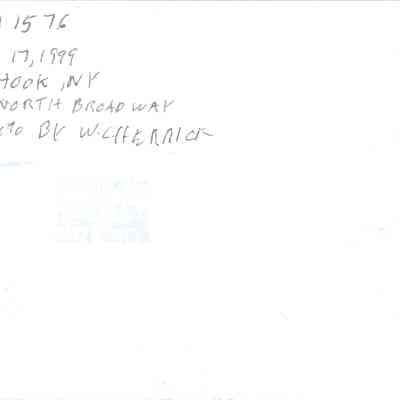 1576
17, 1999
HOOK, NY
NORTH BROADWAY
BY W.C HERRICK